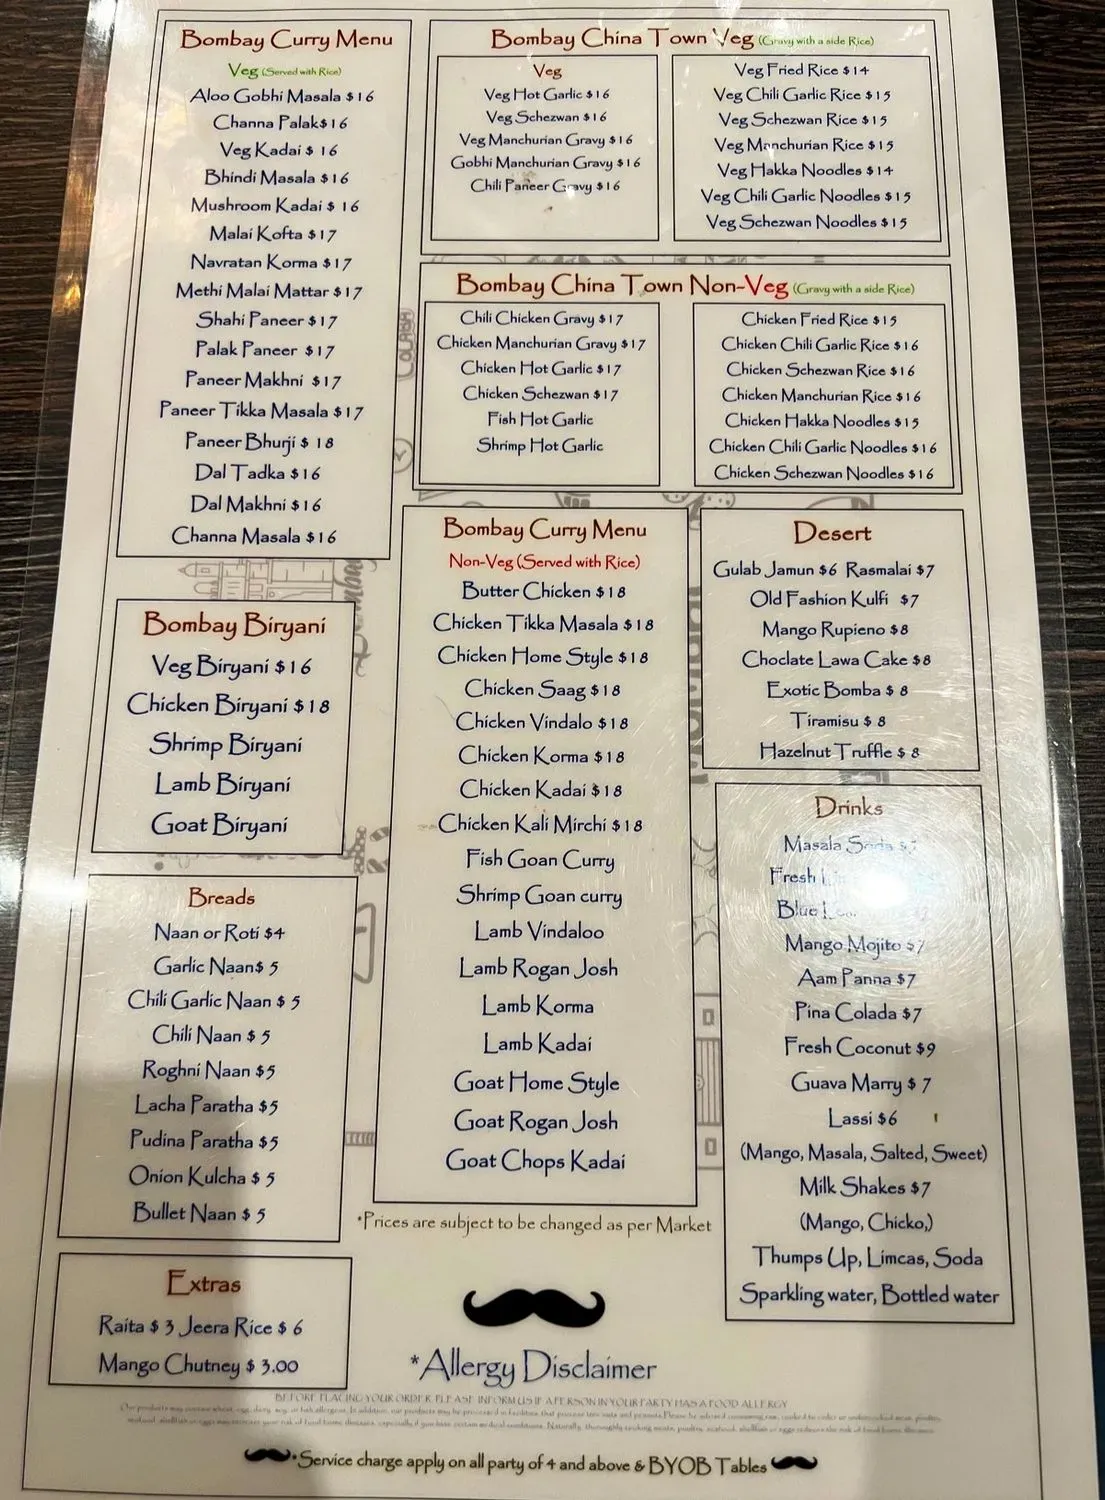 Bombay Curry Menu
Veg (Served with Rice)
Aloo Gobhi Masala $16
Channa Palak$16
Veg Kadai $ 16
Bhindi Masala $16
Mushroom Kadai $ 16
Malai Kofta $17
Navratan Korma $17
Methi Malai Mattar $17
Shahi Paneer $17
Palak Paneer $17
Paneer Makhni $17
Paneer Tikka Masala $17
Paneer Bhurji $ 18
Dal Tadka $16
Dal Makhni $16
Channa Masala $16
Bombay China Town Veg (Gravy with a side Rice)
Veg
Veg Hot Garlic $16
Veg Schezwan $16
Veg Manchurian Gravy $16
Gobhi Manchurian Gravy $16
Chili Paneer Gravy $16
Veg Fried Rice $14
Veg Chili Garlic Rice $15
Veg Schezwan Rice $15
Veg Manchurian Rice $15
Veg Hakka Noodles $14
Veg Chili Garlic Noodles $15
Veg Schezwan Noodles $15
Bombay China Town Non-Veg (Gravy with a side Rice)
Chili Chicken Gravy $17
Chicken Manchurian Gravy $17
Chicken Hot Garlic $17
Chicken Schezwan $17
Fish Hot Garlic
Shrimp Hot Garlic
Chicken Fried Rice $15
Chicken Chili Garlic Rice $16
Chicken Schezwan Rice $16
Chicken Manchurian Rice $16
Chicken Hakka Noodles $15
Chicken Chili Garlic Noodles $16
Chicken Schezwan Noodles $16
COLABA
Bombay Biryani
Veg Biryani $16
Chicken Biryani $18
Shrimp Biryani
Lamb Biryani
Goat Biryani
Breads
Naan or Roti $4
Garlic Naan$ 5
Chili Garlic Naan $ 5
Chili Naan $ 5
Roghni Naan $5
Lacha Paratha $5
Pudina Paratha $5
Onion Kulcha $ 5
Bullet Naan $ 5
Extras
Raita $ 3 Jeera Rice $ 6
Mango Chutney $ 3.00
Bombay Curry Menu
Non-Veg (Served with Rice)
Butter Chicken $18
Chicken Tikka Masala $18
Chicken Home Style $18
Chicken Saag $18
Chicken Vindalo $18
Chicken Korma $18
Chicken Kadai $18
Chicken Kali Mirchi $18
Fish Goan Curry
Shrimp Goan curry
Lamb Vindaloo
Lamb Rogan Josh
Lamb Korma
Lamb Kadai
Goat Home Style
Goat Rogan Josh
Goat Chops Kadai
*Prices are subject to be changed as per Market
Desert
Gulab Jamun $6 Rasmalai $7
Old Fashion Kulfi $7
Mango Rupieno $8
Choclate Lawa Cake $8
Exotic Bomba $ 8
Tiramisu $ 8
Hazelnut Truffle $ 8
Drinks
Masala Soda
Fresh
Blue
Mango Mojito $7
Aam Panna $7
Pina Colada $7
Fresh Coconut $9
Guava Marry $ 7
Lassi $6
(Mango, Masala, Salted, Sweet)
Milk Shakes $7
(Mango, Chicko,)
Thumps Up, Limcas, Soda
Sparkling water, Bottled water
*Allergy Disclaimer
BEFORE PLACING YOUR ORDER, PLEASE INFORM US IF A PERSON IN YOUR PARTY HAS A FOOD ALLERGY
*Service charge apply on all party of 4 and above & BYOB Tables